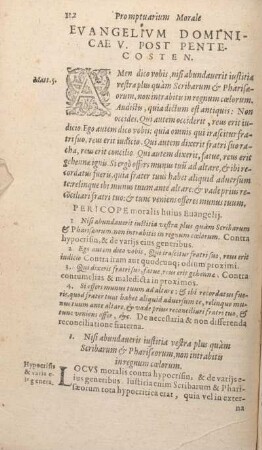 212 Promptuarium Morale
EVANGELIVM DOMINI-
CAE V. POST PENTE-
COSTEN.
Mat. 5.
AMen dico vobis, nisi abundauerit iustitia
vestra plus quàm Scribarum & Pharisæ-
orum, non intrabitis in regnum cælorum.
Audistis, quia dictum est antiquis: Non
occides. Qui autem occiderit, reus erit iu-
dicio. Ego autem dico vobis: quia omnis qui irascitur fra-
tri suo, reus erit iudicio. Qui autem dixerit fratri suo:
racha, reus erit concilio. Qui autem dixerit, fatue, reus erit
gehennæ ignis. Si ergo offers munus tuũ ad altare, & ibi re-
cordatus fueris, quia frater tuus habet aliquid aduersum
te: relinque ibi munus tuum ante altare, & vade prius re-
conciliari fratri tuo: & tunc veniens offeres munus tuum.
PERICOPE moralis huius Euangelij.
1 Nisi abundauerit iustitia vestra plus quàm Scribarum
& Pharisæorum, non intrabitis in regnum cælorum. Contra
hypocrisin, & de varijs eius generibus.
2. Ego autem dico vobis, Qui irascitur fratri suo, reus erit
iudicio. Contra iram aut quodcunq; odium proximi.
3. Qui dixerit fratri suo: fatue, reus erit gehennæ ignis.
Contra contumelias & maledicta in proximos.
4. Si offers munus tuum ad altare: & ibi recordatus fue-
ris, quia frater tuus habet aliquid aduersum te, relinque mu-
nus tuum ante altare, & vade prius reconciliari fratri tuo, &
tunc veniens offeres, &c. De necessaria & non differenda
reconciliatione fraterna.
1. Nisi abundauerit iustitia vestra plus quàm
Scribarum & Pharisæorum, non intrabitis
in regnum cælorum.
Hypocrisis
& varia e-
ius genera.
LOCVS moralis contra hypocrisin, & de varijs e-
ius generibus. Iustitia enim Scribarum & Phari-
sæorum tota hypocritica erat, quia vel in exter-
na